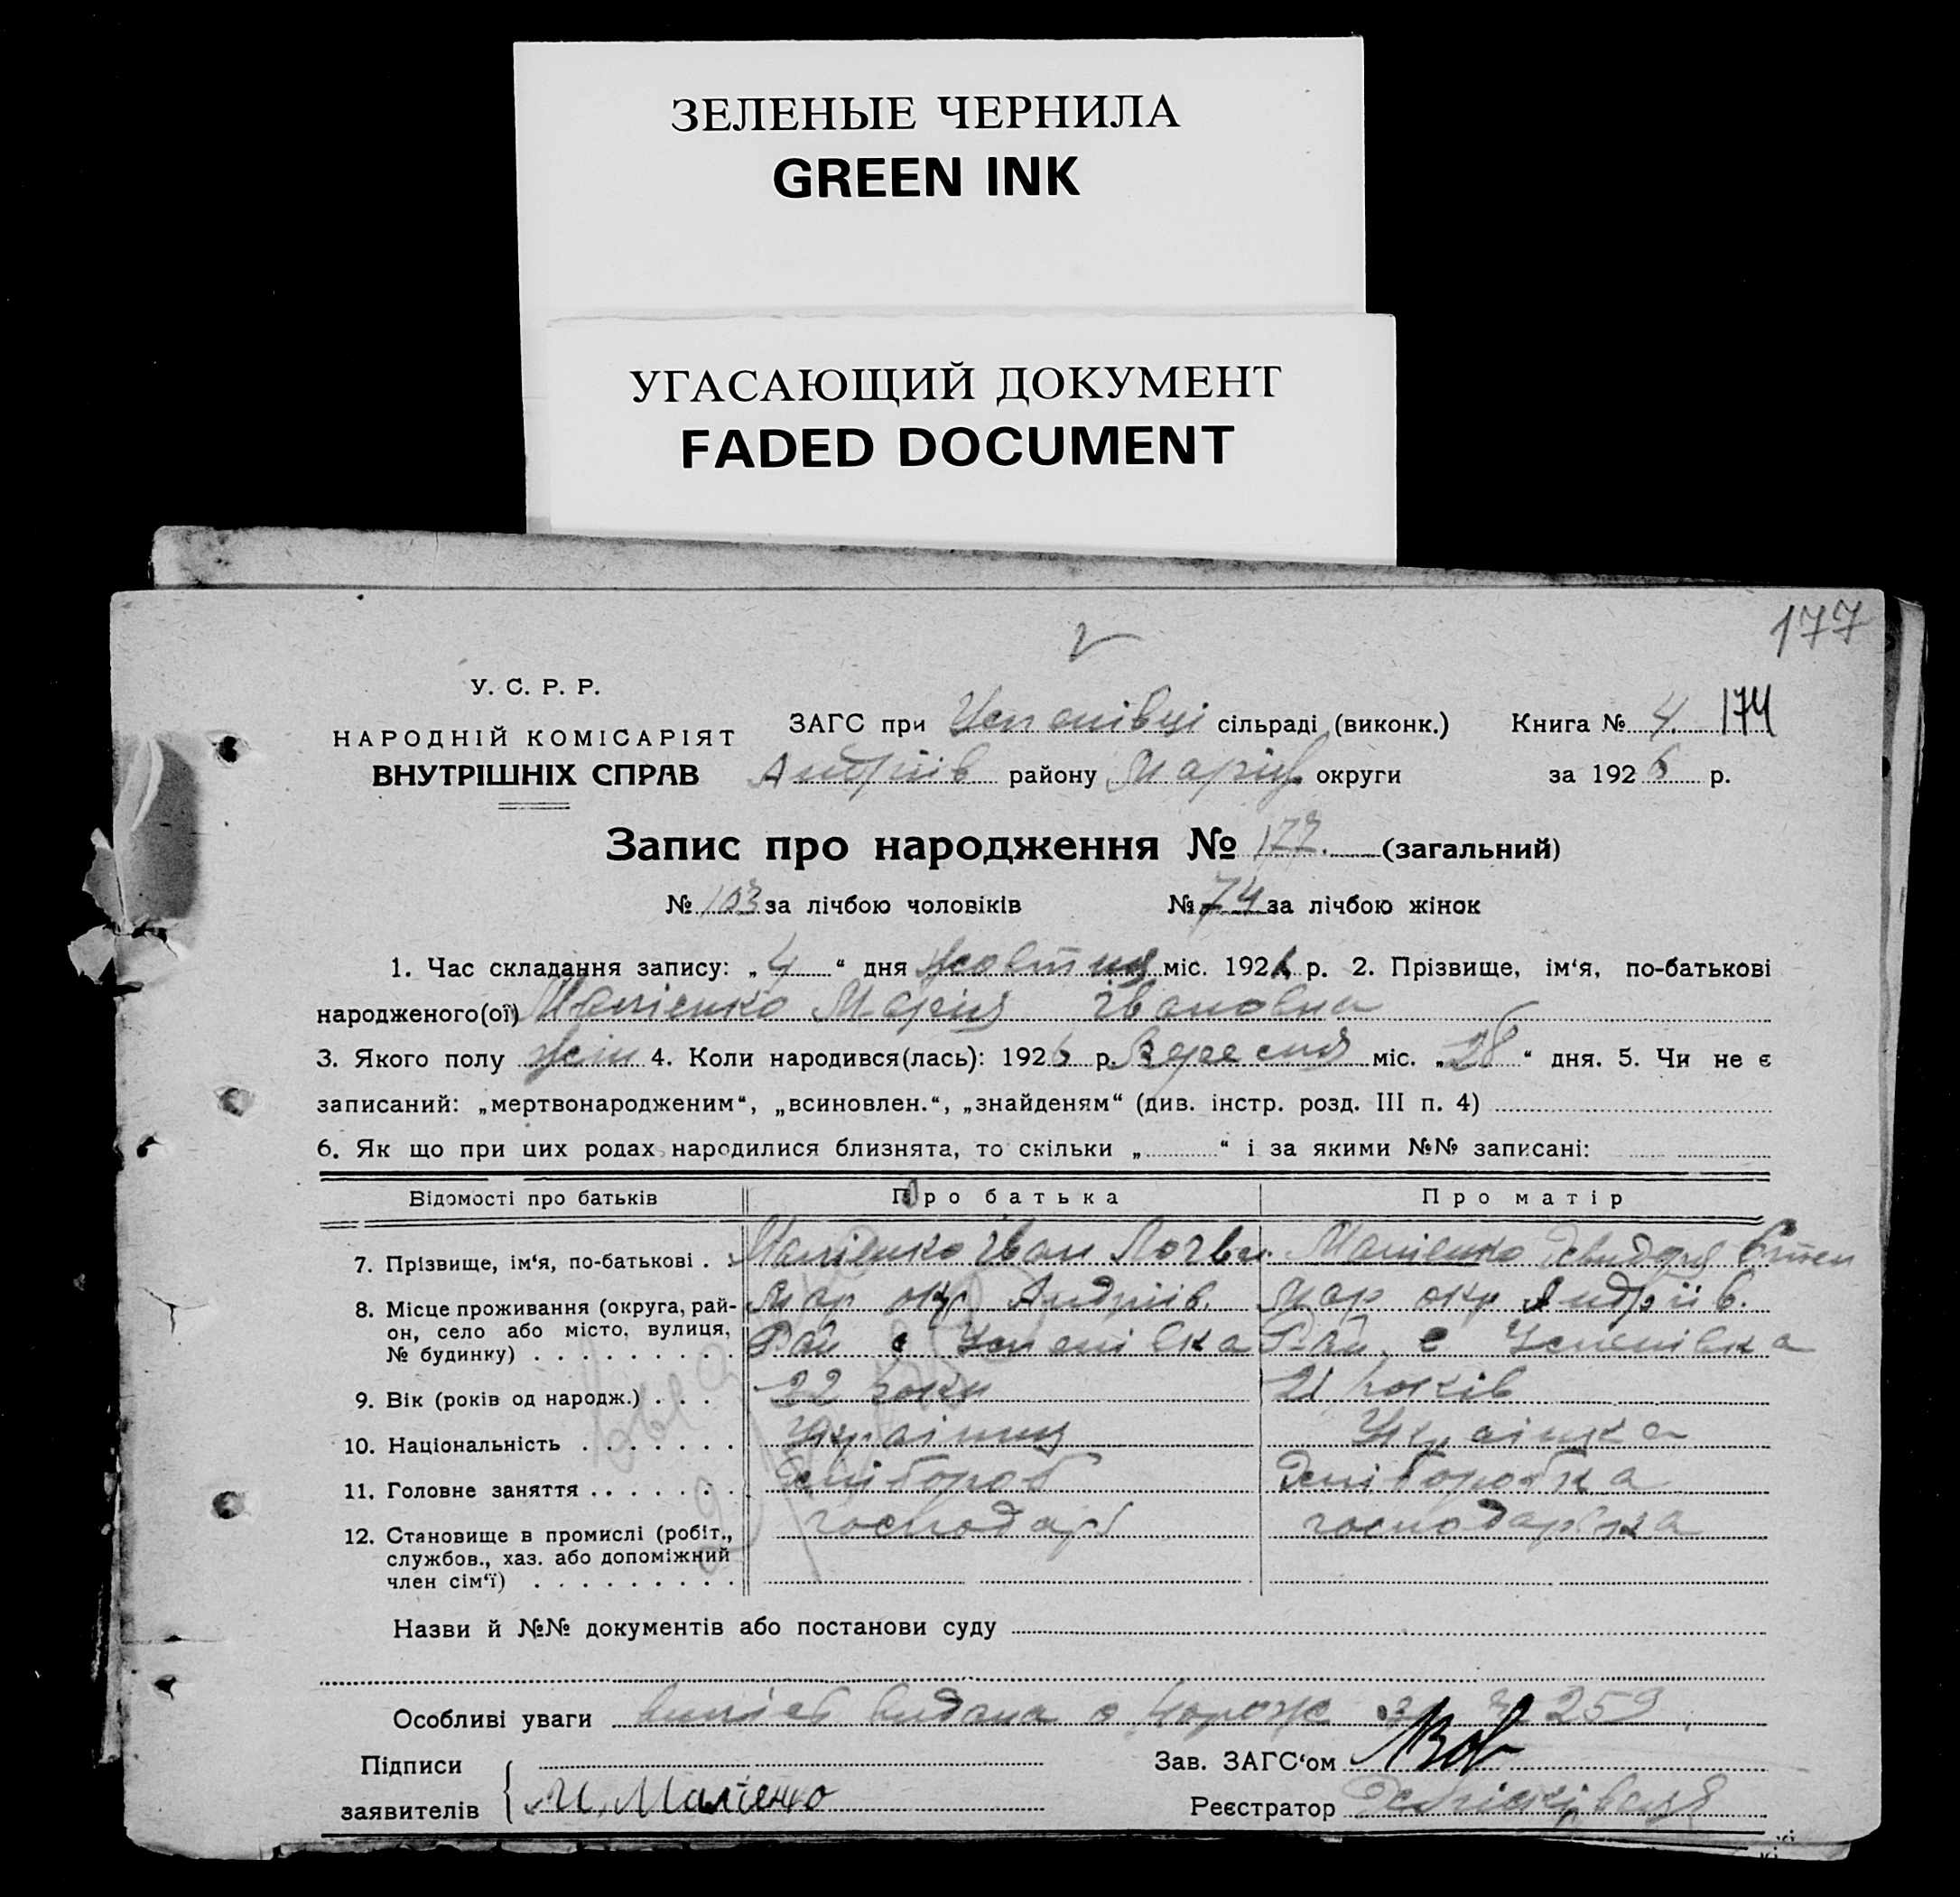 ЗЕЛЕНЫЕ ЧЕРНИЛА
GREEN INK
УГАСАЮЩИЙ ДОКУМЕНТ
FADED DOCUMENT
177
У. С. Р. Р.
НАРОДНІЙ КОМІСАРІЯТ
ВНУТРІШНІХ СПРАВ
ЗАГС при Успенівці сільраді (виконк.) Книга № 4. 174
Андріів району Маріуп округи за 1926 р.
Запис про народження № 177. (загальний)
№ 103 за лічбою чоловіків № 74 за лічбою жінок
1. Час складання запису: „ 4 “ дня жовтня міс. 1926 р. 2. Прізвище, ім‘я, по-батькові
народженого(ої) Мария івановна
3. Якого полу жін 4. Коли народився(лась): 1926 р. Вересня міс. „ 28 “ дня. 5. Чи не є
записаний: „мертвонародженим“, „всиновлен.“, „знайденям“ (див. інстр. розд. III п. 4)
6. Як що при цих родах народилися близнята, то скільки „ “ і за якими №№ записані:
Відомості про батьків Про батька Про матір
7. Прізвище, ім‘я, по-батькові . . іван
8. Місце проживання (округа, рай- Мар окр Андріів. Мар окр Андріів.
он, село або місто, вулиця, Рай с Успенівка Рай. с Успенівка
№ будинку)
9. Вік (років од народж.) . . . 22 роки 21 років
10. Національність Українец Українка
11. Головне заняття Хлібороб Хліборобка
12. Становище в промислі (робіт., господарь господарька
службов., хаз. або допоміжний
член сім‘ї)
Назви й №№ документів або постанови суду
Особливі уваги видана 259
Підписи Зав. ЗАГС‘ом
заявителів Реєстратор